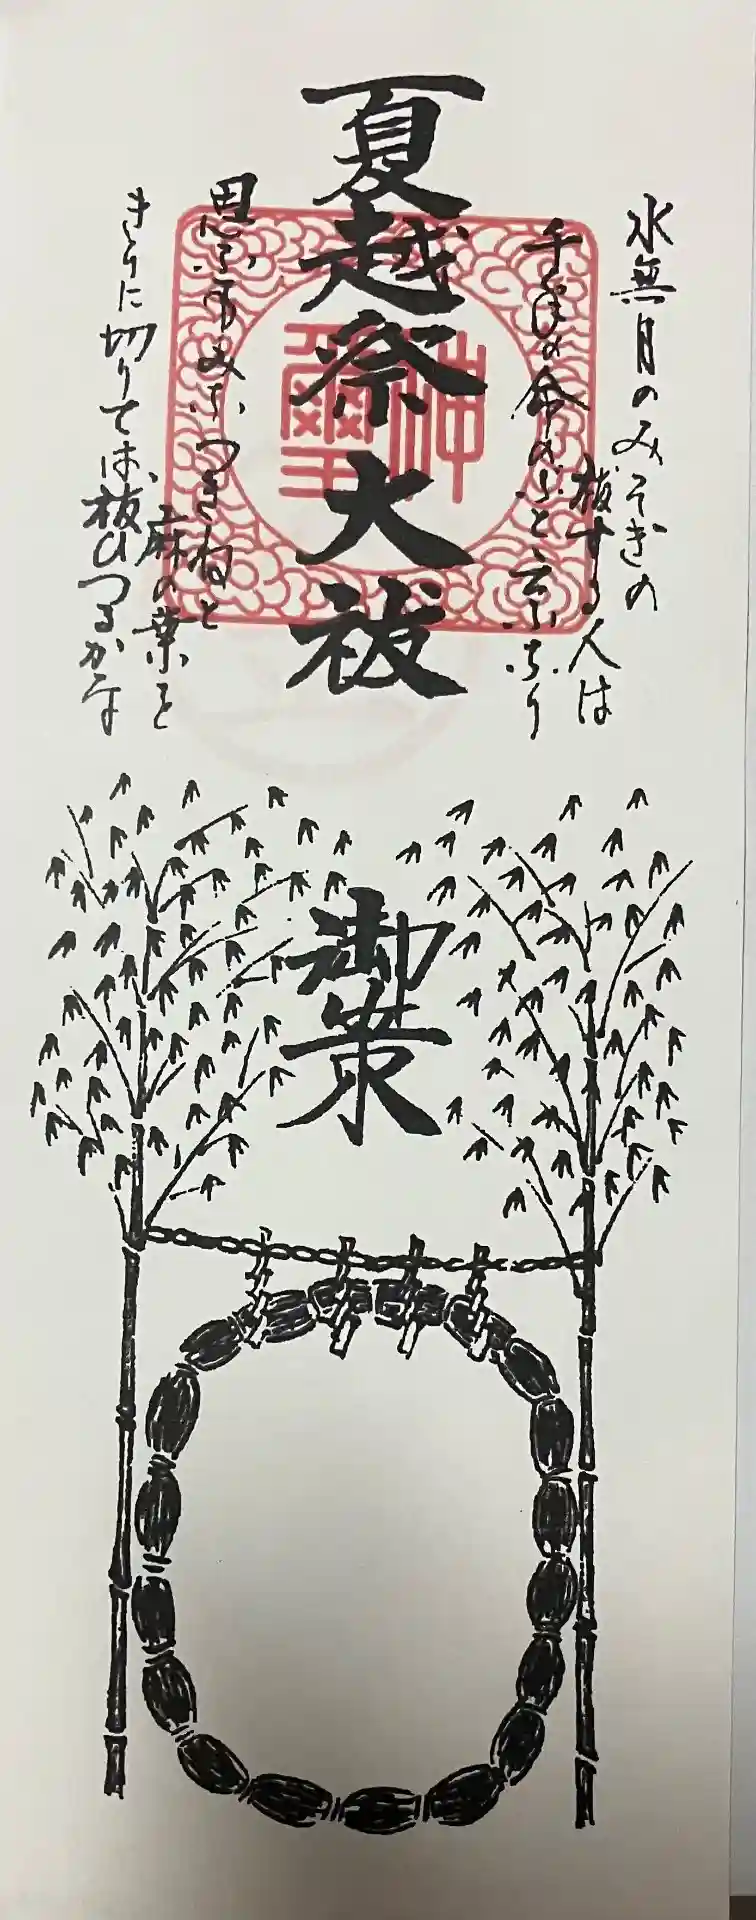 水無月のみそぎの
祓する人は
千年の命のぶと云ふなり
夏越祭大祓
御
神璽
思ふ事みなつきねと
麻の葉を
きりに切りては
祓ひつるかな